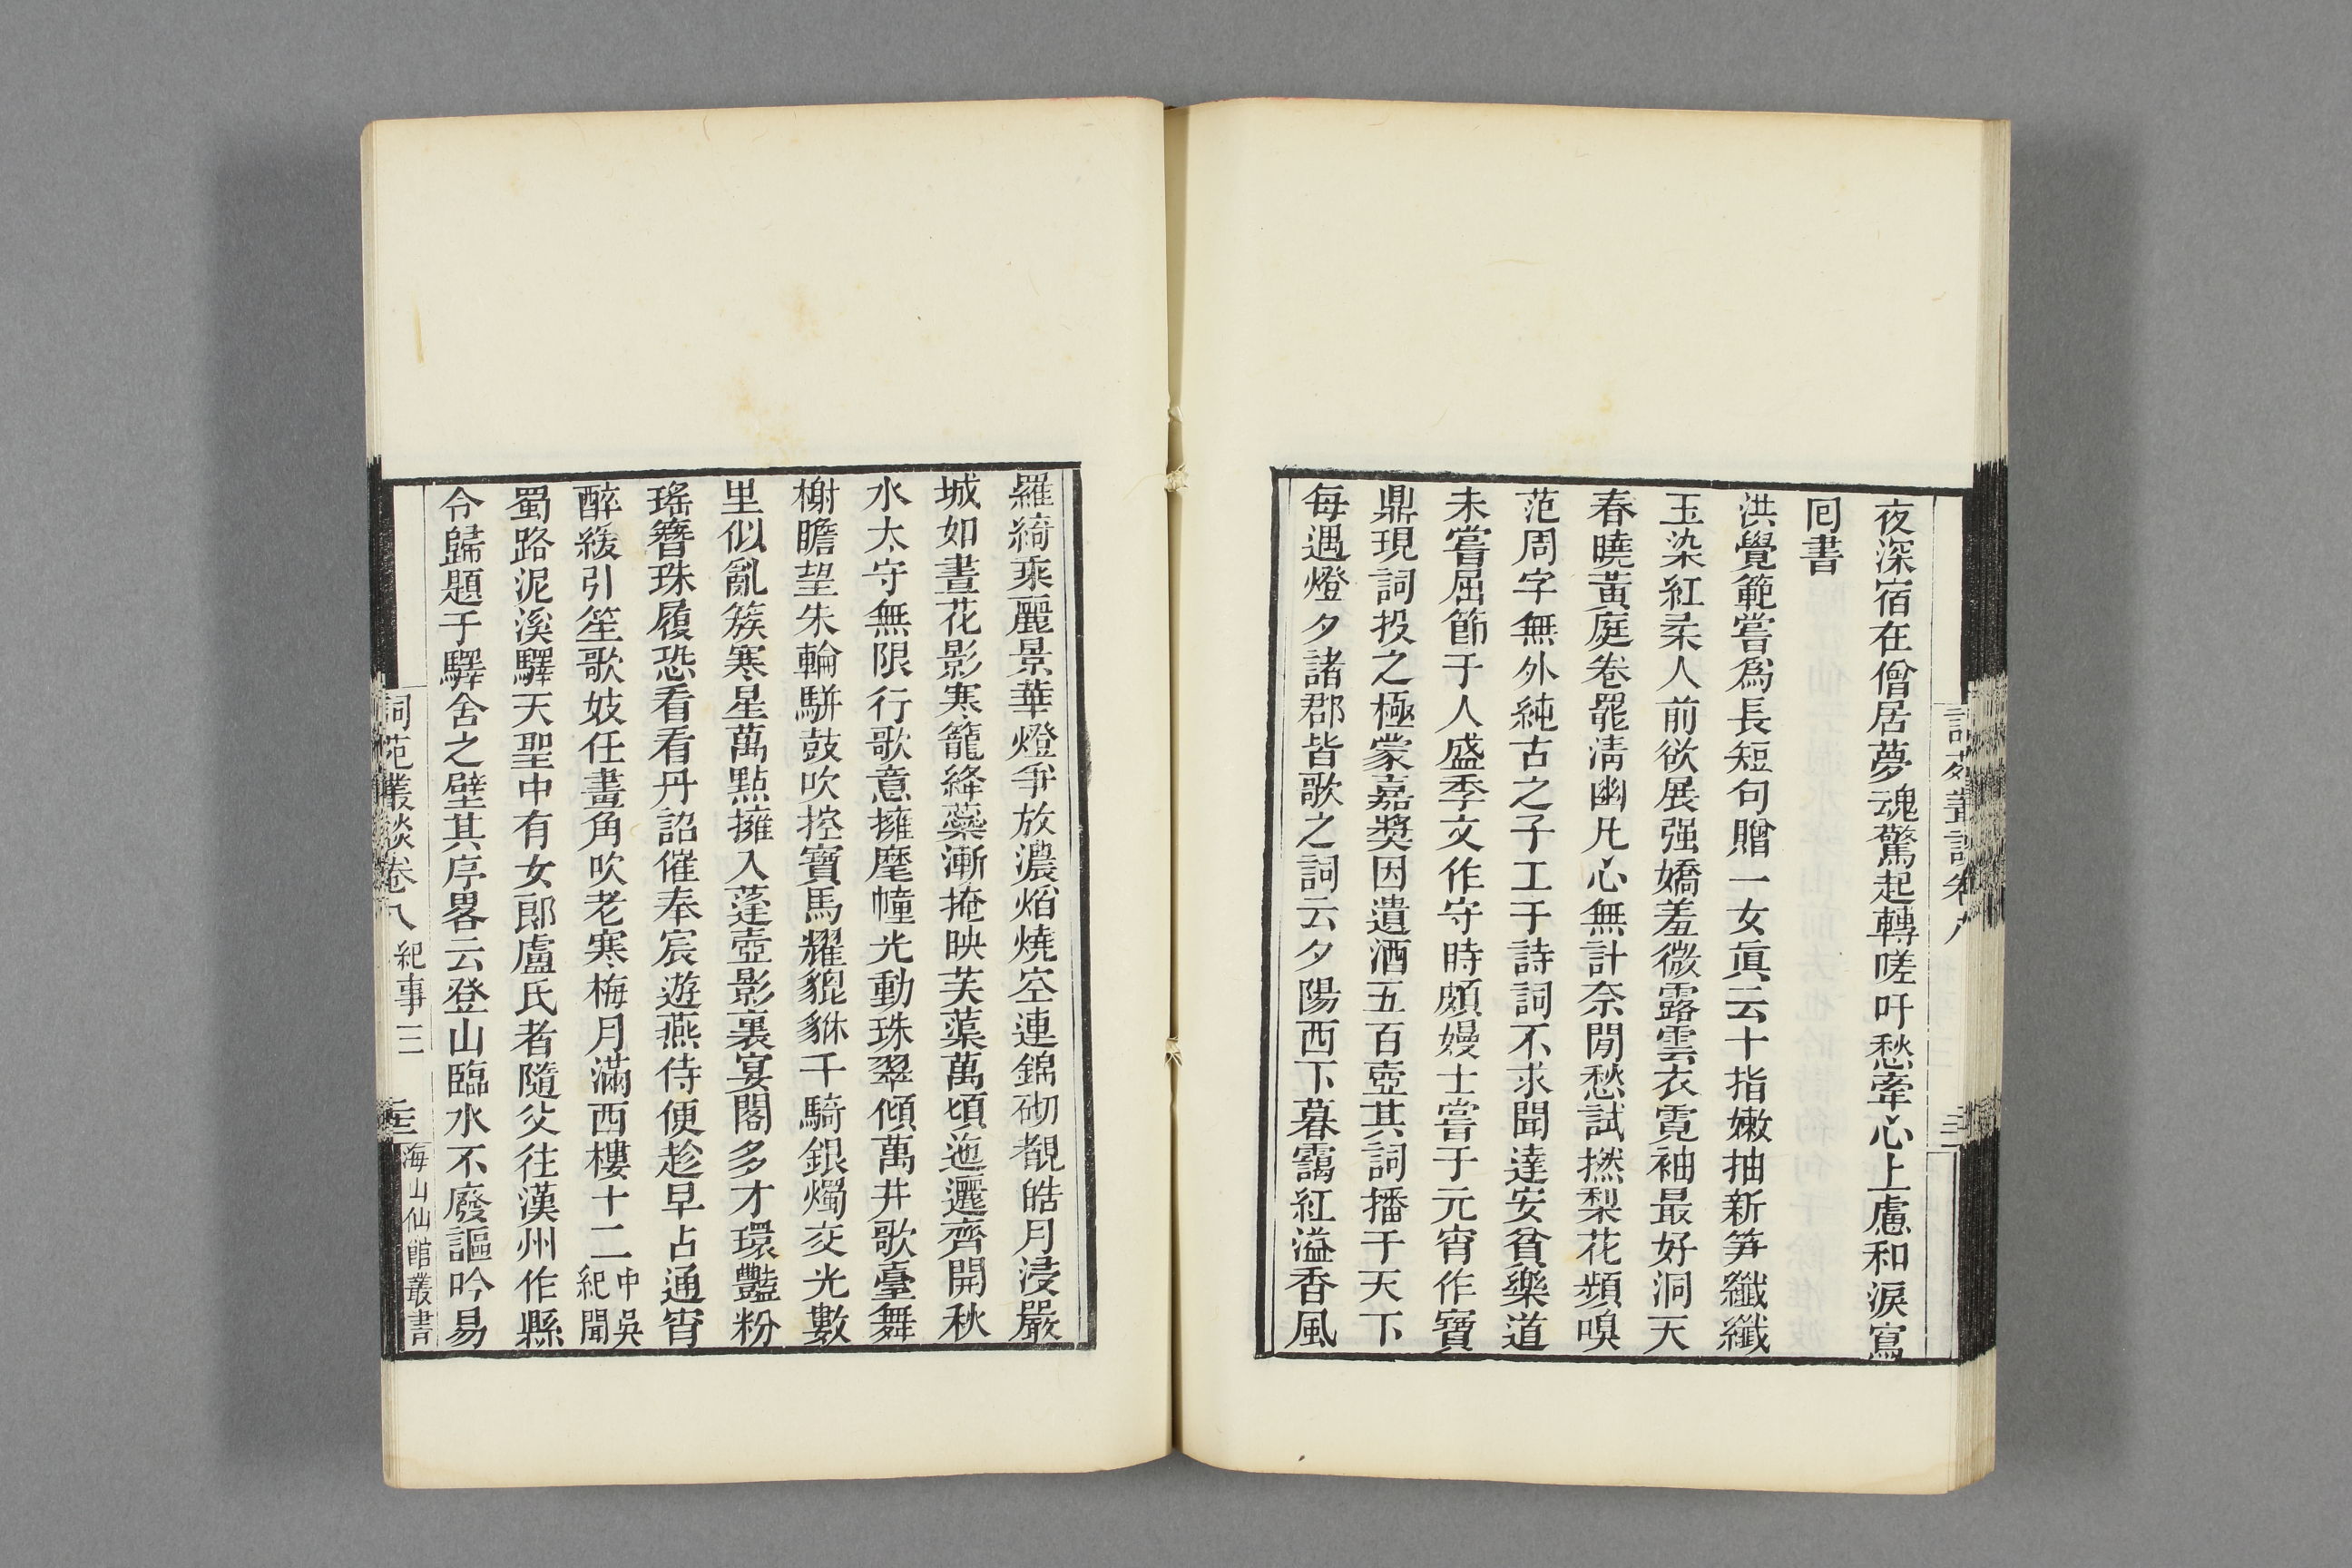 夜深宿在僧居夢魂驚起轉嗟吁愁牽心上慮和淚寫
囘書
洪覺範嘗爲長短句贈一女眞云十指嫩抽新笋纎纎
玉染紅柔人前欲展强嬌羞微露雲衣霓袖最好洞天
春曉黃庭卷罷淸幽凡心無計奈閒愁試撚梨花頻嗅
范周字無外純古之子工于詩詞不求聞達安貧樂道
未嘗屈節于人盛季文作守時頗嫚士嘗于元宵作寶
鼎現詞投之極蒙嘉奬因遺酒五百壺其詞播于天下
每遇燈夕諸郡皆歌之詞云夕陽西下暮靄紅溢香風
羅綺乘麗景華燈爭放濃熖燒空連錦砌覩皓月浸嚴
城如晝花影寒籠絳蘂漸掩映芙蕖萬頃迤邐齊開秋
水太守無限行歌意擁麾幢光動珠翠傾萬井歌臺舞
榭瞻望朱輪駢鼓吹控寶馬耀貔貅千騎銀燭交光數
里似亂簇寒星萬點擁入蓬壺影裏宴閣多才環豔粉
瑤簪珠履恐看看丹詔催奉宸遊燕侍便趁早占通宵
醉緩引笙歌妓任畫角吹老寒梅月滿西樓十二中吳
紀聞
蜀路泥溪驛天聖中有女郞盧氏者隨父往漢州作縣
令歸題于驛舍之壁其序畧云登山臨水不廢謳吟易
詞苑叢談卷八 紀事三
海山仙館叢書